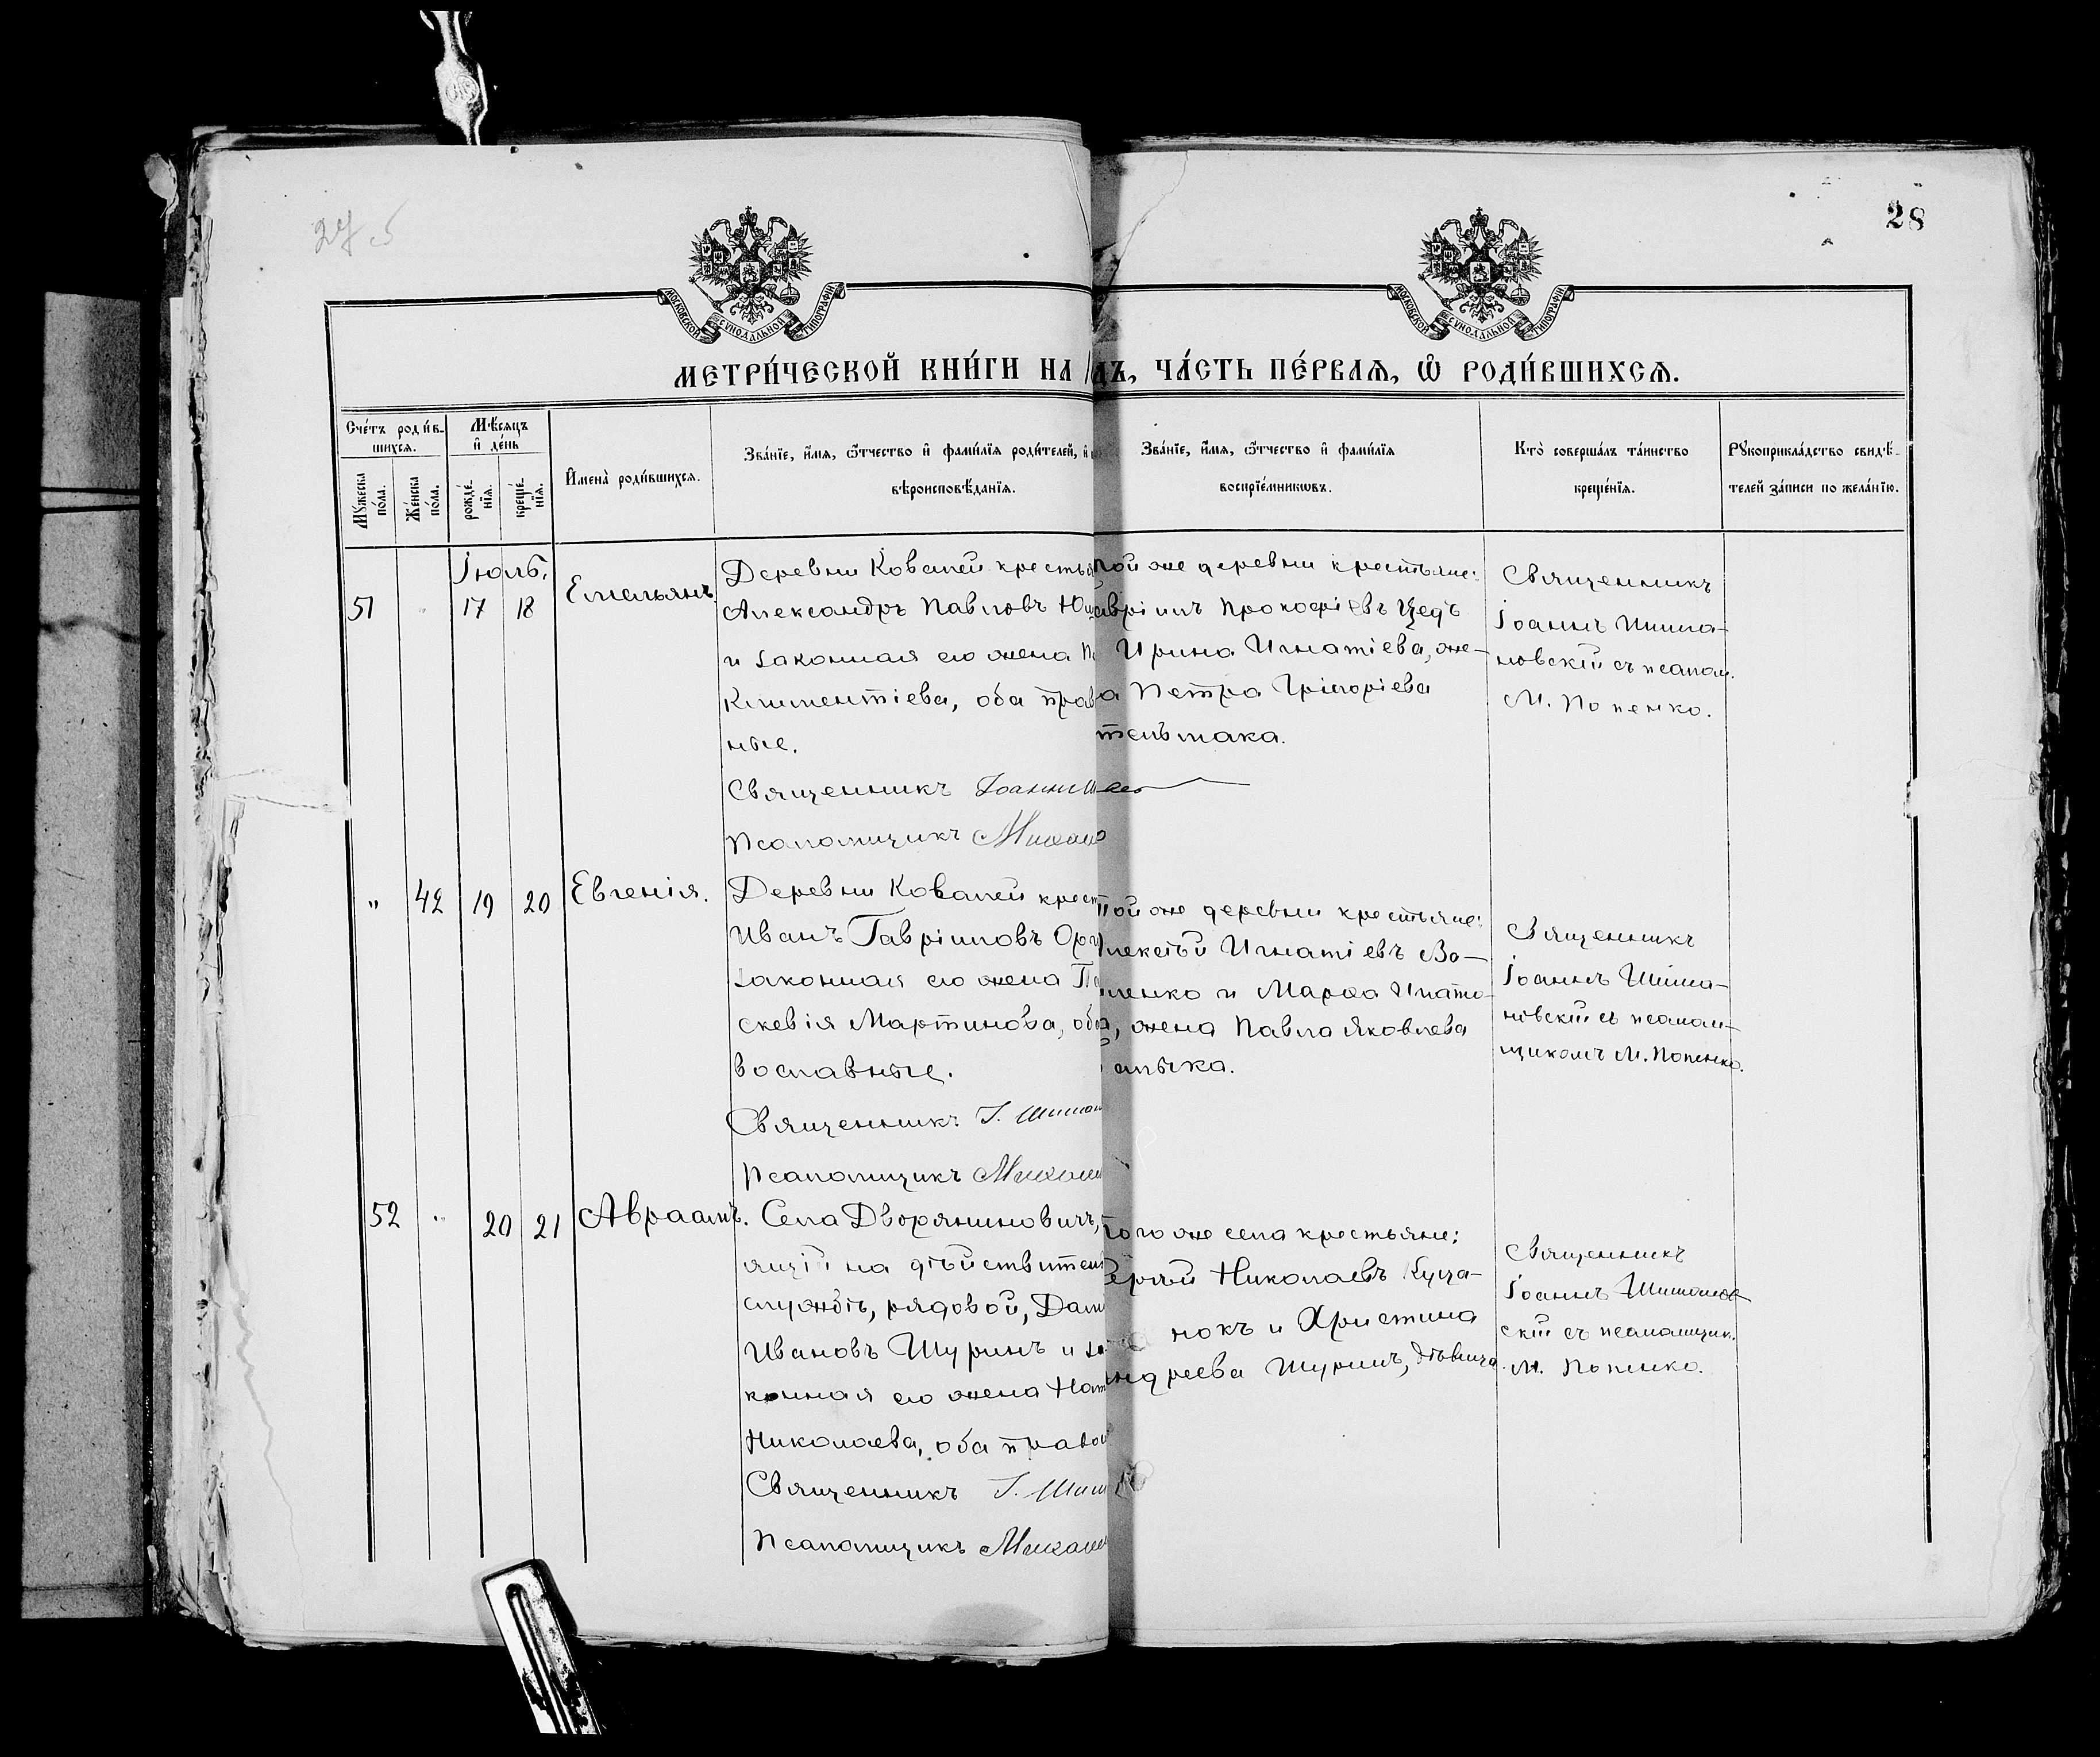 28
МОСКОВСКОЙ СѴНОДАЛЬНОЙ ТИПОГРАФІИ
МОСКОВСКОЙ СѴНОДАЛЬНОЙ ТИПОГРАФІИ
МЕТРИ́ЧЕСКОЙ КНИ́ГИ НА
ДЪ, ЧА́СТЬ ПЕ́РВАѦ, Ѡ҆ РОДИ́ВШИХСѦ.
Сче́тъ роди́в-
шихсѧ.
Мѣ́сѧцъ
и҆ де́нь
Мꙋ́жеска по́ла.
Же́нска по́ла.
рожде́-
нїѧ.
креще́-
нїѧ.
И҆мена̀ роди́вшихсѧ.
Зва́нїе, и҆́мѧ, ѻ҆́тчество и҆ фами́лїѧ роди́телей, и҆
вѣроисповѣ́данїѧ.
Зва́нїе, и҆́мѧ, ѻ҆́тчество и҆ фами́лїѧ
воспрїе́мникѡвъ.
Кто̀ соверша́лъ та́инство
креще́нїѧ.
Рꙋкоприкла́дство свидѣ́-
телей за́писи по жела́нїю.
Іюль.
51
17 18
Емельянъ.
Деревни Ковалей крестья
Александръ Павловъ
и законная его жена
Климентіева, оба прав
ные.
Священникъ Іоаннъ
Псаломщикъ Михаил
той же деревни крестьяне:
авріилъ Прокофіевъ
Ирина Игнатіева, же-
а Петра Григоріева
тельмака.
Священникъ
Іоаннъ Шима-
новскій съ псалом.
М. Попенко.
" 42 19 20
Евгенія.
Деревни Ковалей крест
Иванъ Гавріиловъ
законная его жена Па
скевія Мартинова, оба
вославные.
Священникъ І. Шиман
Псаломщикъ Михаил
той же деревни крестьяне:
лексѣй Игнатіевъ Ва-
ленко и Марѳа Игнать-
, жена Павла Яковлева
Священникъ
Іоаннъ Шима-
новскій съ псалом-
щикомъ М. Попенко.
52 " 20 21
Авраамъ.
Села Дворяниновичъ,
ящій на дѣйствител
службѣ, рядовой,
Ивановъ Шуринъ и за
конная его жена Нат
Николаева, оба правосл
Священникъ І. Шим
Псаломщикъ Михаил
того же села крестьяне:
ергѣй Николаевъ
нокъ и Христина
ндреева Шуринъ, дѣвица.
Священникъ
Іоаннъ Шиманов-
скій съ псаломщик.
М. Попенко.